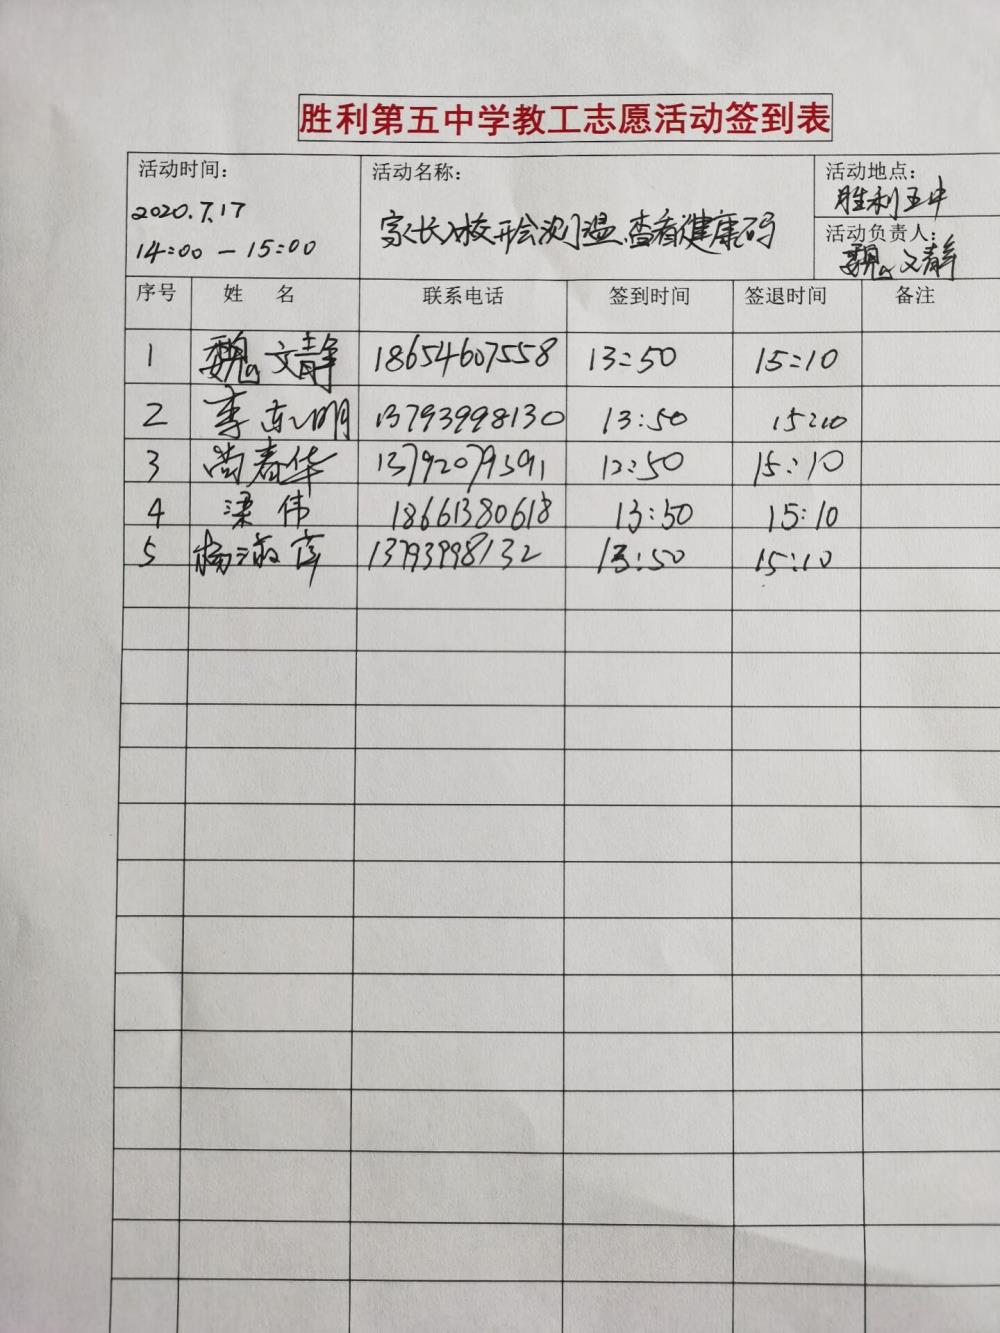 胜利第五中学教工志愿活动签到表
活动时间: 活动名称: 活动地点:
2020.7.17 家长入校开会测温、查看健康码 胜利五中
14:00 — 15:00 活动负责人: 魏文静
序号 姓 名 联系电话 签到时间 签退时间 备注
1 魏文静 18654607558 13:50 15:10
2 李东明 13793998130 13:50 15:10
3 尚春华 13792079591 13:50 15:10
4 梁伟 18661380618 13:50 15:10
5 杨淑 13793998132 13:50 15:10